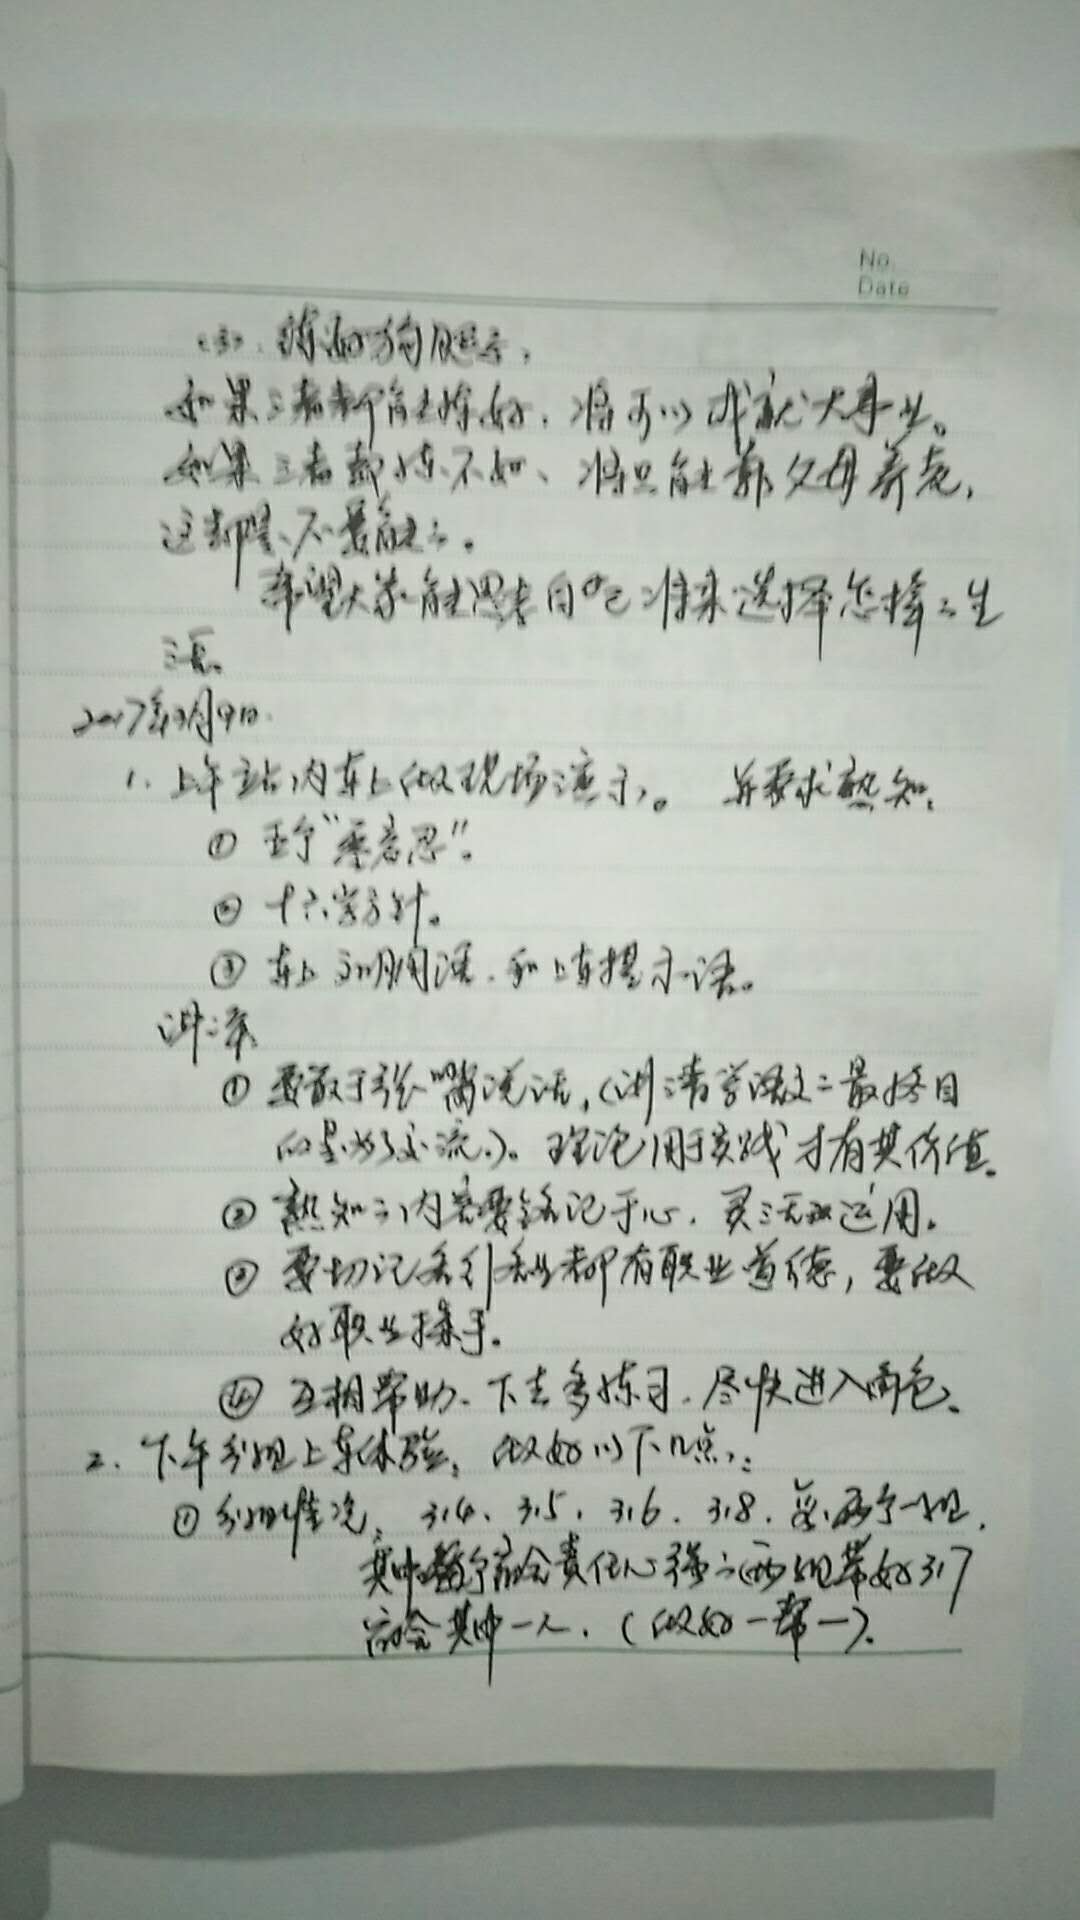 No.
Date
<3>、练好狗腿子,
如果三者都能练好、将可以成就大事业。
如果三者都练不好、将只能靠父母养老,
这都是不可能的。
希望大家能思考自己将来选择怎样的生
活。
2017年3月9日.
1. 上午站内车上做现场演示。 并要求熟知:
① 五个“愿意思”。
② 十六字方针。
③ 车上文明用语、和上车提示语。
讲评:
① 要敢于张嘴说话,(讲清学语文的最终目
的是为了交流)。理论用于实践才有其价值。
② 熟知的内容要铭记于心、灵活运用。
③ 要切记各行各业都有职业道德,要做
好职业操手。
④ 互相帮助、下去多练习、尽快进入角色。
2. 下午分组上车体验,做好以下几点:
① 分组情况: 314、315、316、318、每两个一组,
其中每个宿舍责任心强的两组带好317
宿舍其中一人、(做好一帮一)。